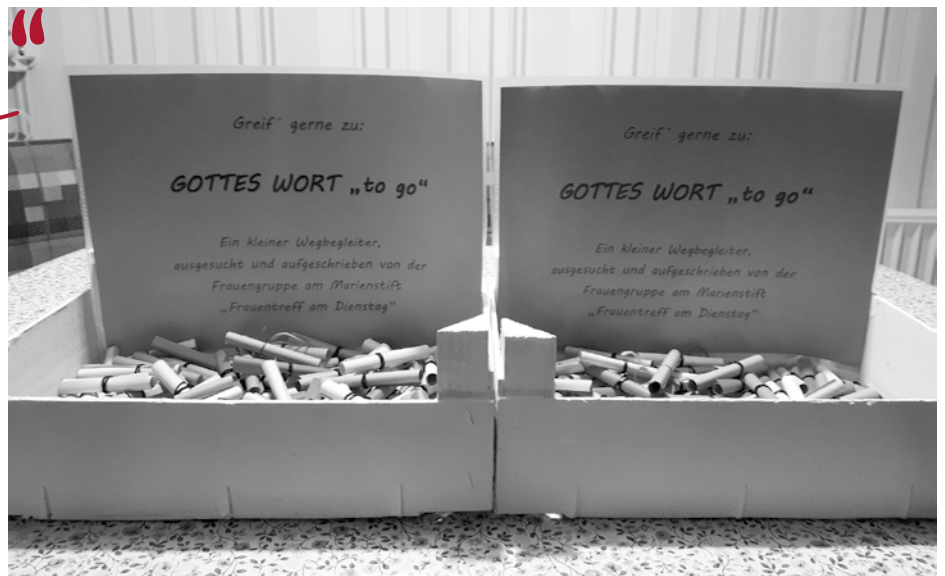 “
Greif´ gerne zu:
GOTTES WORT „to go“
Ein kleiner Wegbegleiter,
ausgesucht und aufgeschrieben von der
Frauengruppe am Marienstift
„Frauentreff am Dienstag“
Greif´ gerne zu:
GOTTES WORT „to go“
Ein kleiner Wegbegleiter,
ausgesucht und aufgeschrieben von der
Frauengruppe am Marienstift
„Frauentreff am Dienstag“